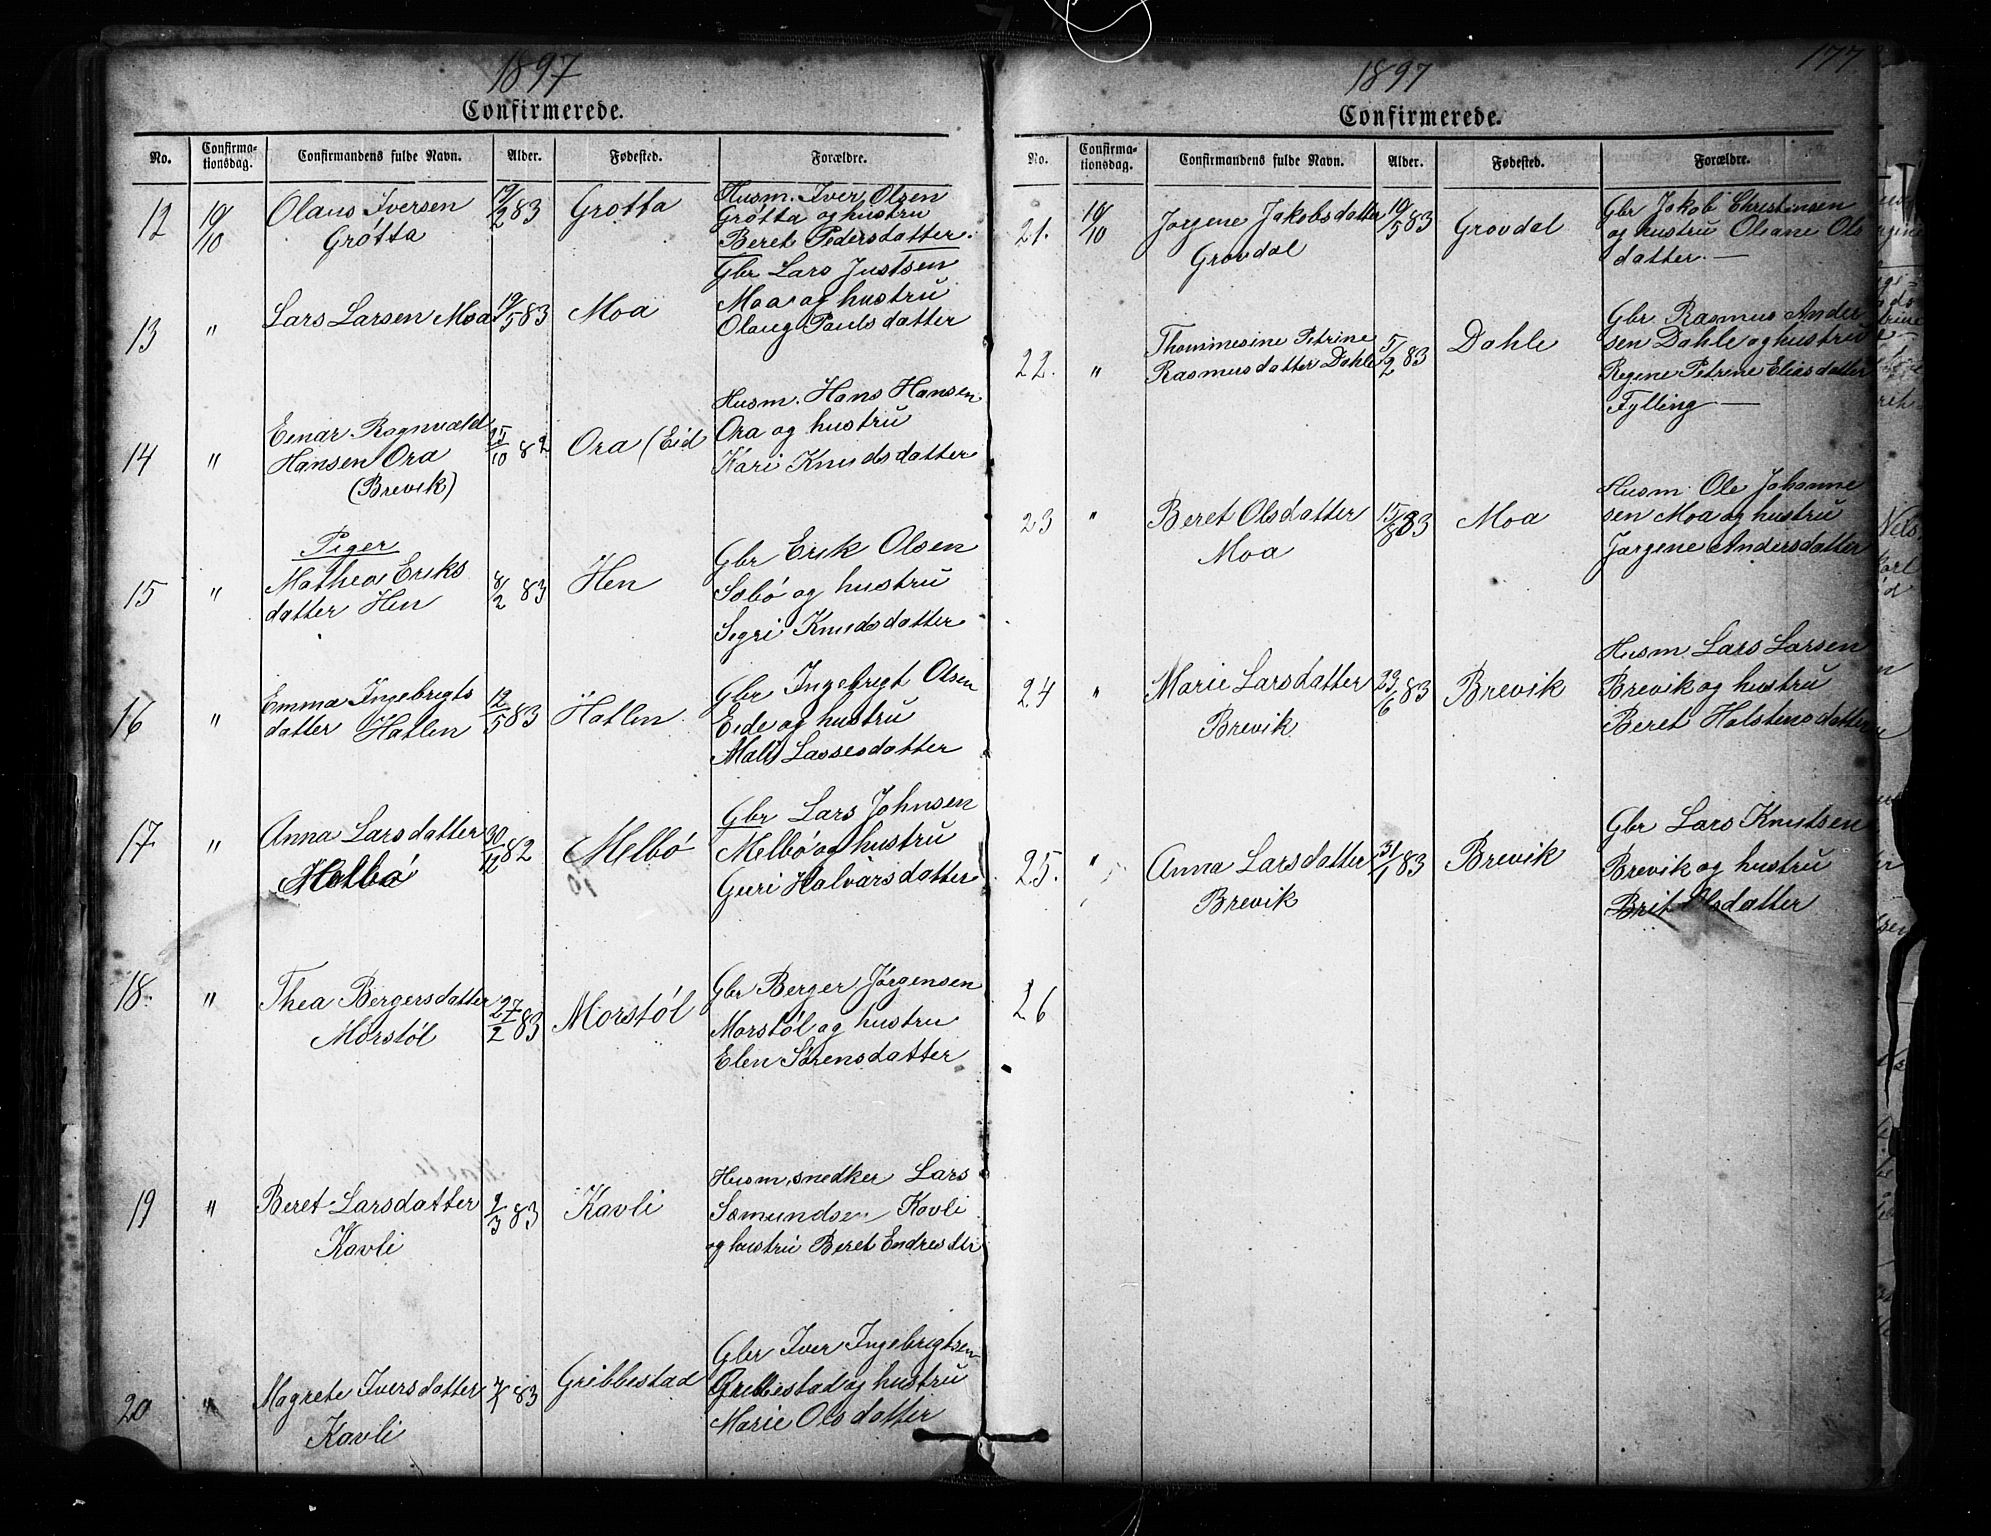 1897
Confirmerede.
No. Confirma-tionsdag. Confirmandens fulde Navn. Alder. Fødested. Forældre.
12 10/10 Olaus Iversen Grøtta 19/2 83 Grøtta Husm. Iver Olsen
Grøtta og hustru
Beret Pedersdatter.
13 " Lars Larsen Moa 19/5 83 Moa Gbr Lars Justsen
Moa og hustru
Olaug Paulsdatter
14 " Einar Ragnvald 25/10 82 Ora (Eid Husm. Hans Hansen
Hansen Ora Ora og hustru
(Brevik) Kari Knudsdatter
Piger
15 " Mathea Eriks 8/2 83 Hen Gbr Erik Olsen
datter Hen Sobø og hustru
Segri Knudsdatter
16 " Emma Ingebrigts 12/5 83 Hatlen Gbr Ingebrigt Olsen
datter Hatlen Eide og hustru
Mali Lassesdatter
17 " Anna Larsdatter 30/12 82 Melbø Gbr Lars Johnsen
Melbø Melbø og hustru
Guri Halvarsdatter
18. " Thea Bergersdatter 27/2 83 Morstøl Gbr Berger Jørgensen
Morstøl Morstøl og hustru
Elen Sørensdatter
19 " Beret Larsdatter 9/3 83 Kavli Husm, snedker Lars
Kavli Samundsen Kavli
og hustru Beret Endresdtr
20 " Magrete Iversdatter 83 Gribbestad Gbr Iver Ingebrigtsen
Kavli Gribbestad og hustru
Marie Olsdatter
1897
177
Confirmerede.
No. Confirma-tionsdag. Confirmandens fulde Navn. Alder. Fødested. Forældre.
21. 10/10 Jørgene Jakobsdatter 10/5 83 Grovdal Gbr Jakob Christensen
Grovdal og hustru Oliane Ols
datter. —
22. " Thommesine Petrine 5/2 83 Dahle Gbr Rasmus Ander
Rasmusdatter Dahle sen Dahle og hustru
Regine Petrine Eliasdatter
Fylling —
23 " Beret Olsdatter 15/8 83 Moa Husm. Ole Johanne
Moa sen Moa og hustru
Jørgene Andersdatter
24 " Marie Larsdatter 23/6 83 Brevik Husm Lars Larsen
Brevik Brevik og hustru
Beret Halstensdatter
25. " Anna Larsdatter 31/1 83 Brevik Gbr Lars Knutsen
Brevik Brevik og hustru
Brit Olsdatter
26